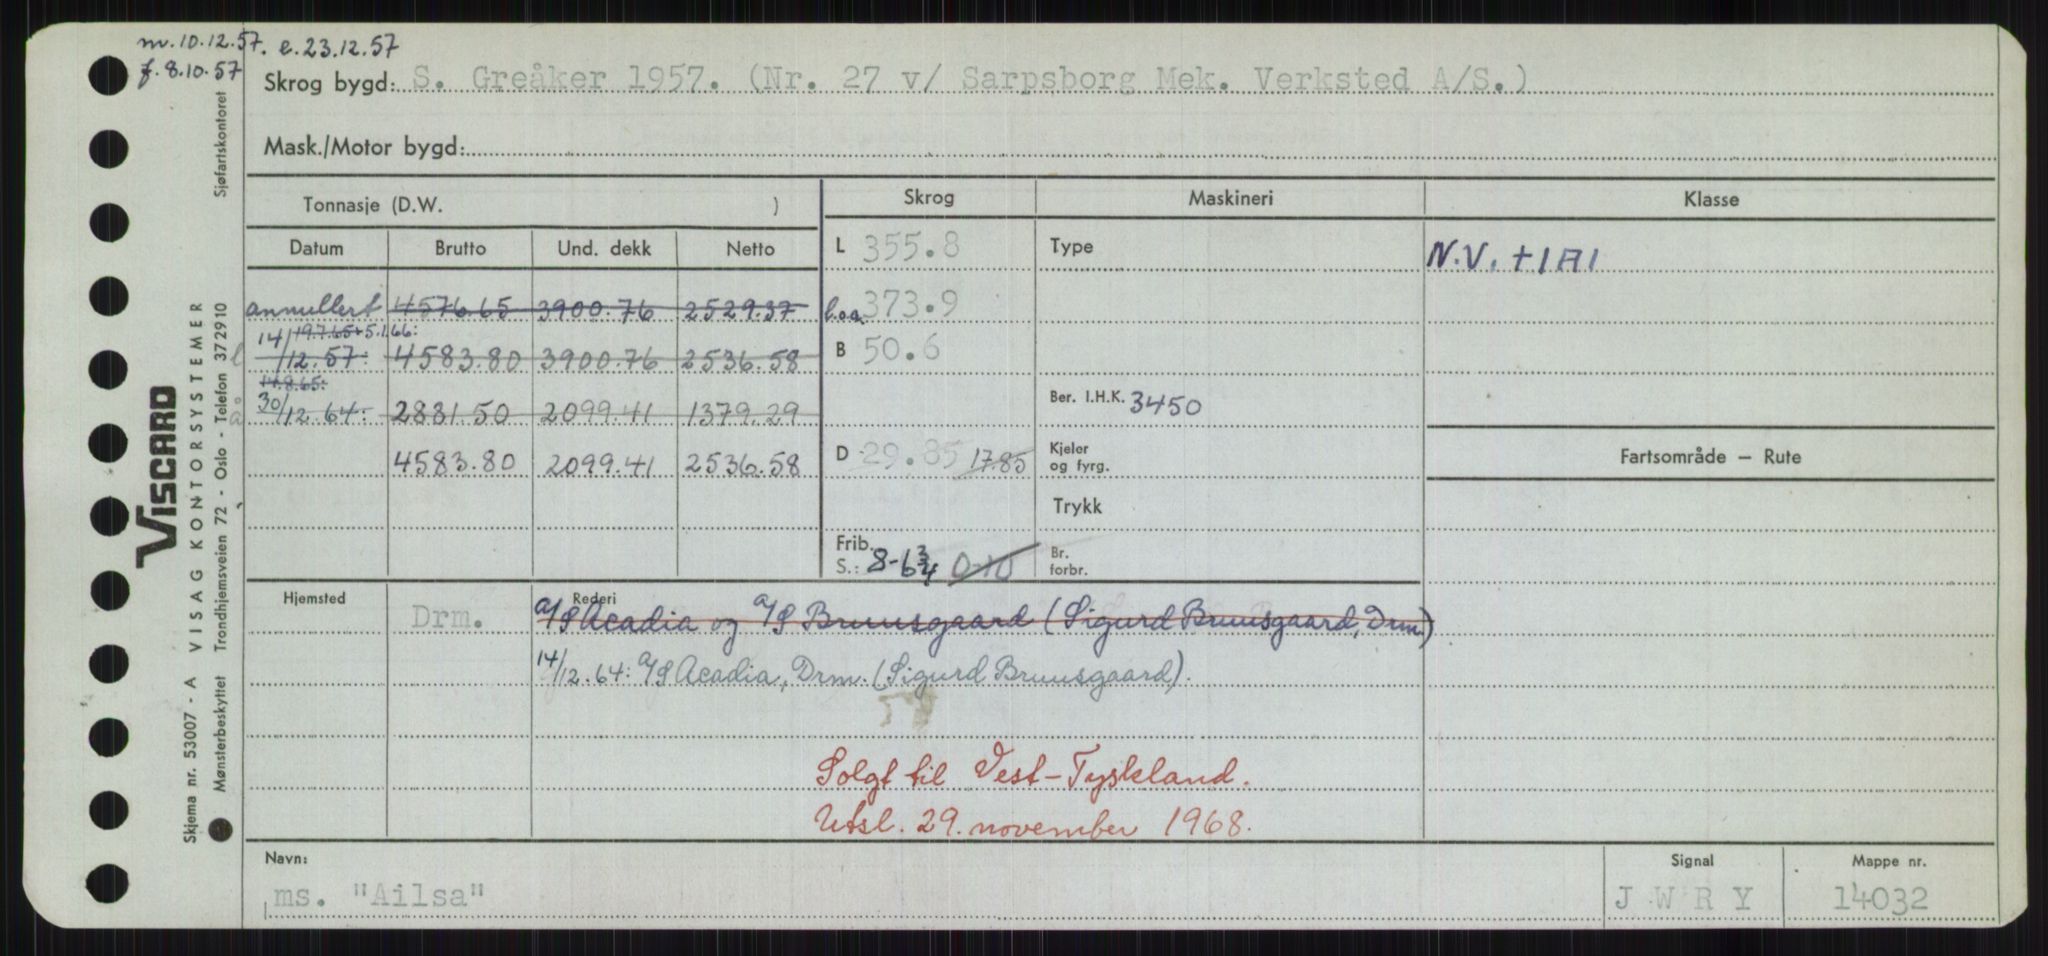 m. 10.12.57. e. 23.12.57
f. 8.10.57
Skrog bygd: S. Greåker 1957. (Nr. 27 v/ Sarpsborg Mek. Verksted A/S.)
Mask./Motor bygd:
Tonnasje (D.W. )
Skrog
Maskineri
Klasse
Datum Brutto Und. dekk Netto
L 355.8
Type
N.V. +1A1
annullert 4576.65 3900.76 2529.37
l.o.a. 373.9
19.7.65+5.1.66:
14/12.57: 4583.80 3900.76 2536.58
B 50.6
14.8.65:
30/12.64: 2881.50 2099.41 1379.29
Ber. I.H.K. 3450
4583.80 2099.41 2536.58
D 29.85 17.85
Kjeler og fyrg.
Fartsområde — Rute
Trykk
Frib. S.: 8-6 3/4 0-10
Br. forbr.
Hjemsted
Drm.
Rederi
A/S Acadia og A/S Bruusgaard (Sigurd Bruusgaard, Drm.)
14/12.64: A/S Acadia, Drm. (Sigurd Bruusgaard).
Solgt til Vest-Tyskland.
Utsl. 29. november 1968.
Navn:
ms. "Ailsa"
Signal
J W R Y
Mappe nr.
14032
VISCARD
Skjema nr. 53007 - A VISAG KONTORSYSTEMER
Mønsterbeskyttet Trondhjemsveien 72 - Oslo - Telefon 372910 Sjøfartskontoret